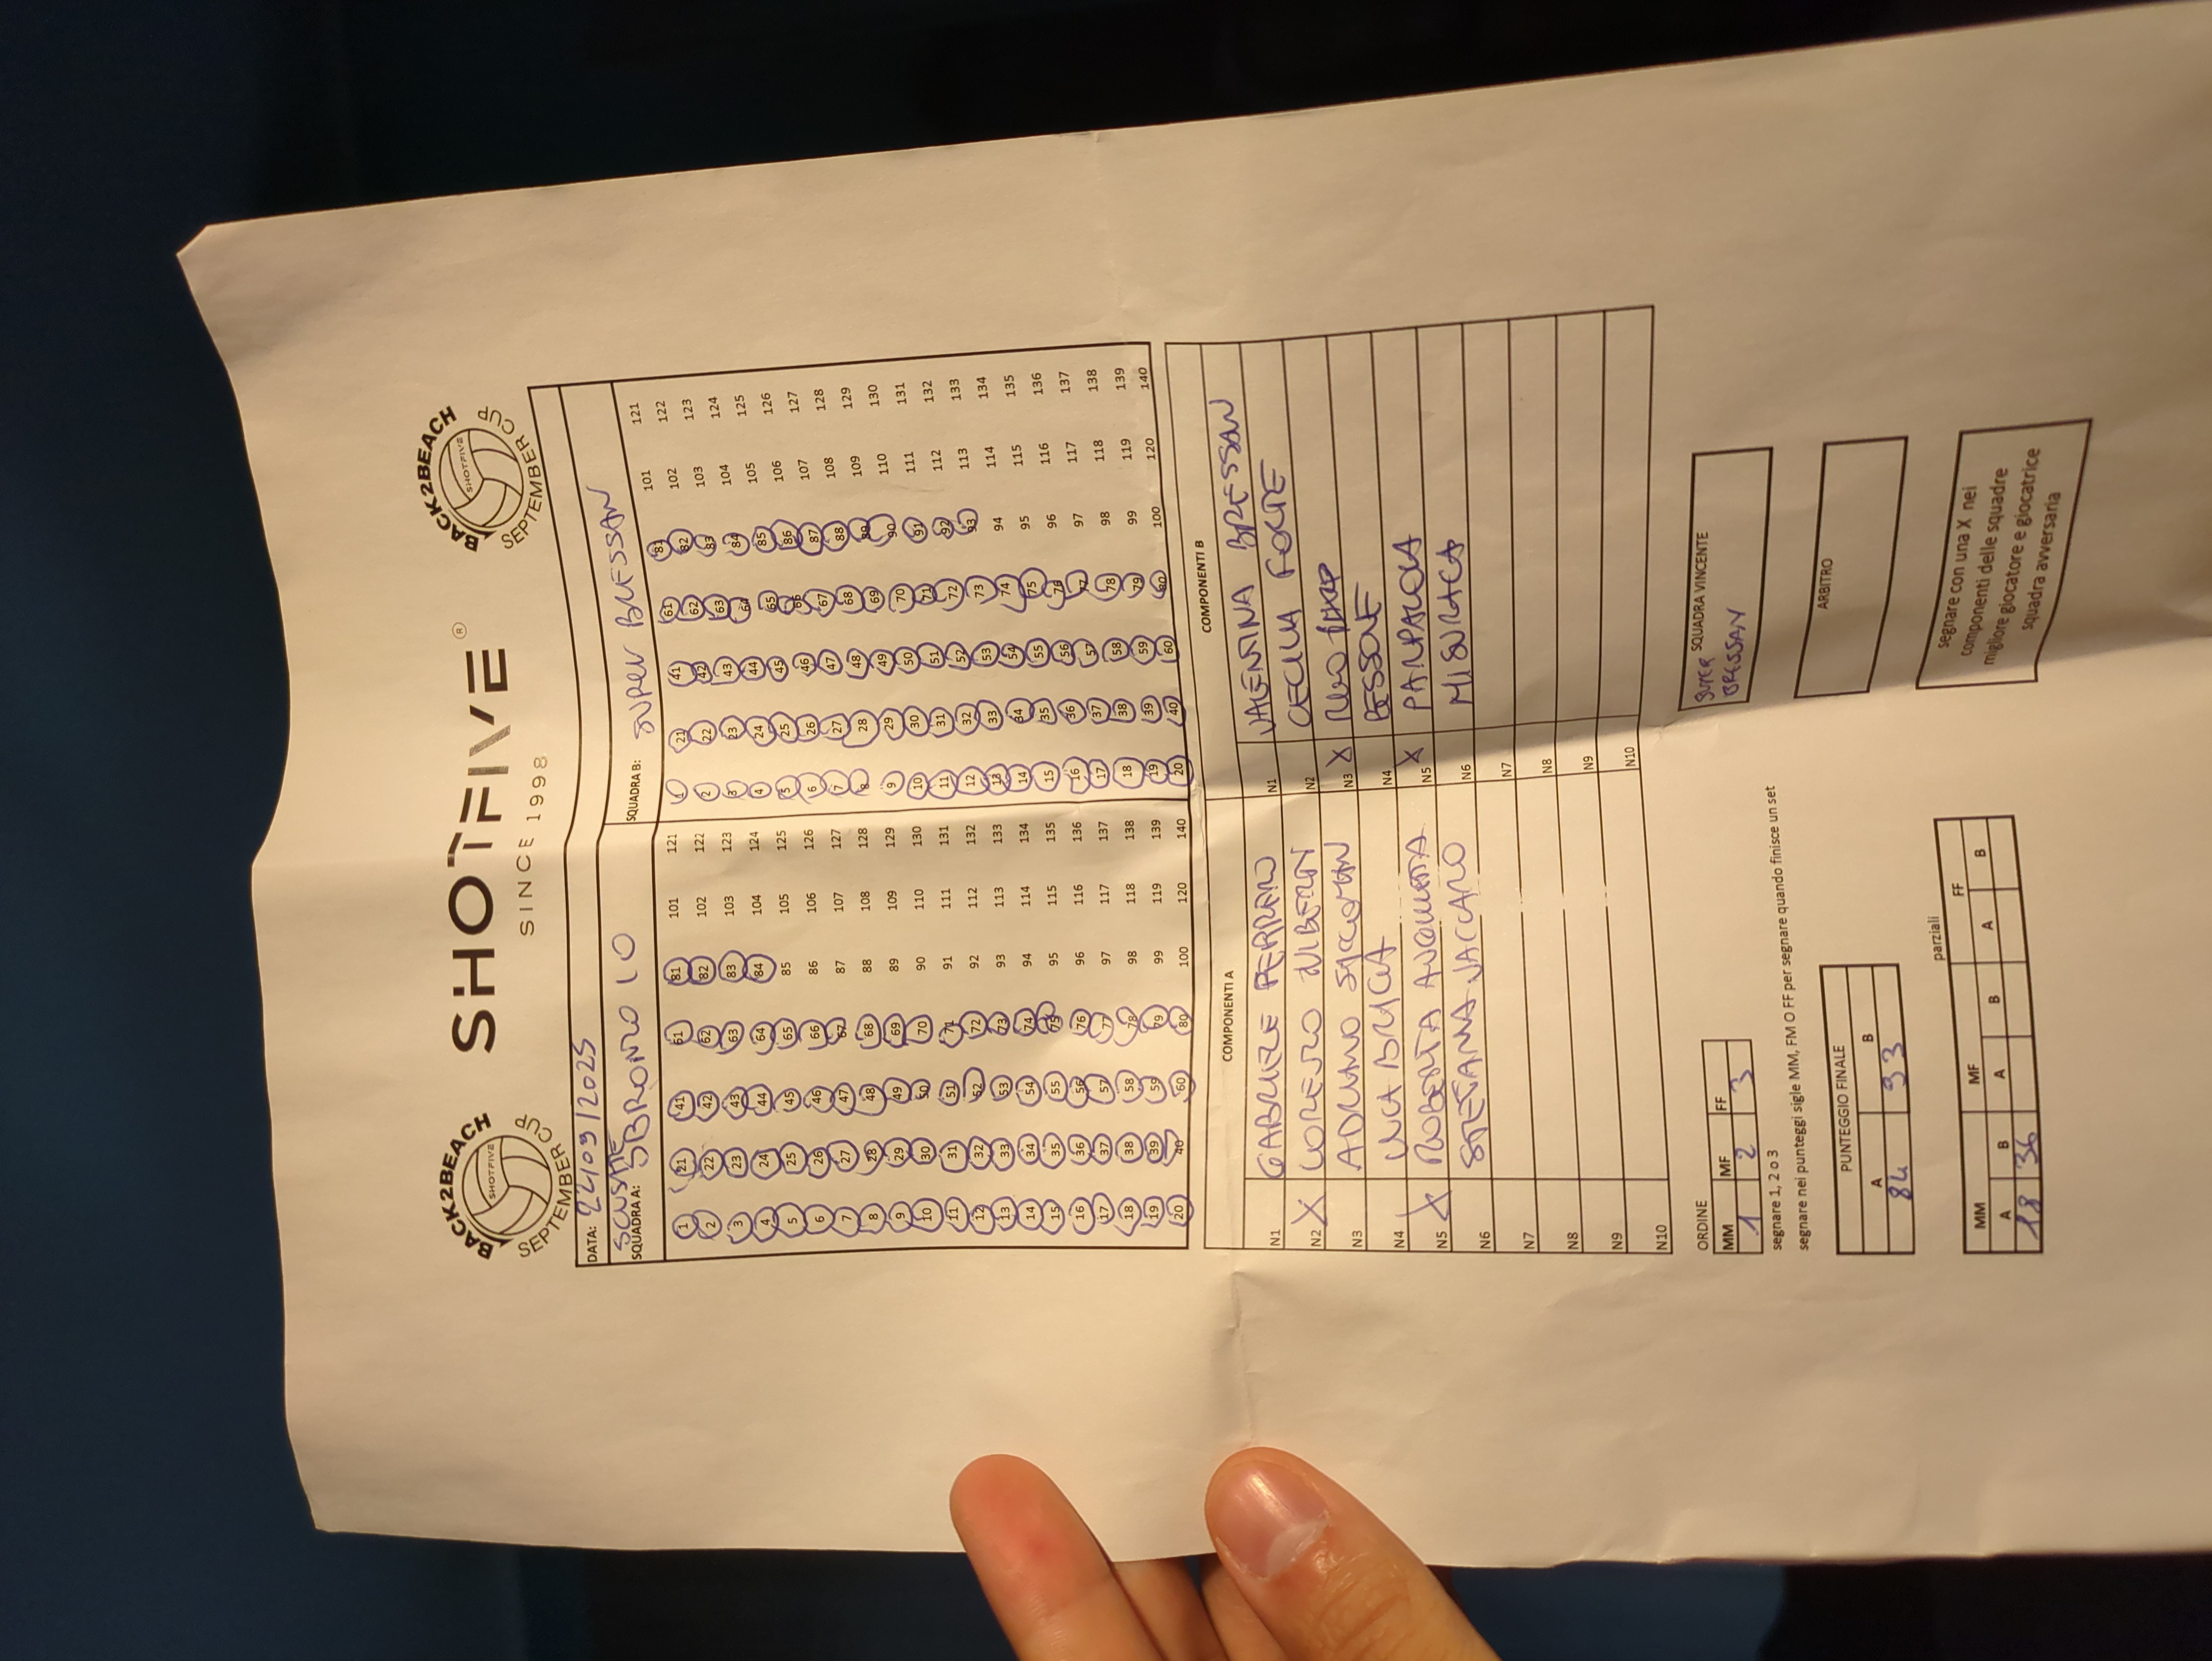 BACK2BEACH SHOTFIVE SEPTEMBER CUP
SHOTFIVE®
SINCE 1998
BACK2BEACH SHOTFIVE SEPTEMBER CUP
DATA: 22/09/2025
SQUADRA A: SCUSATE SBRONZO IO
SQUADRA B: SUPER BRESSAN
1 21 41 61 81 101 121 1 21 41 61 81 101 121
2 22 42 62 82 102 122 2 22 42 62 82 102 122
3 23 43 63 83 103 123 3 23 43 63 83 103 123
4 24 44 64 84 104 124 4 24 44 64 84 104 124
5 25 45 65 85 105 125 5 25 45 65 85 105 125
6 26 46 66 86 106 126 6 26 46 66 86 106 126
7 27 47 67 87 107 127 7 27 47 67 87 107 127
8 28 48 68 88 108 128 8 28 48 68 88 108 128
9 29 49 69 89 109 129 9 29 49 69 89 109 129
10 30 50 70 90 110 130 10 30 50 70 90 110 130
11 31 51 71 91 111 131 11 31 51 71 91 111 131
12 32 52 72 92 112 132 12 32 52 72 92 112 132
13 33 53 73 93 113 133 13 33 53 73 93 113 133
14 34 54 74 94 114 134 14 34 54 74 94 114 134
15 35 55 75 95 115 135 15 35 55 75 95 115 135
16 36 56 76 96 116 136 16 36 56 76 96 116 136
17 37 57 77 97 117 137 17 37 57 77 97 117 137
18 38 58 78 98 118 138 18 38 58 78 98 118 138
19 39 59 79 99 119 139 19 39 59 79 99 119 139
20 40 60 80 100 120 140 20 40 60 80 100 120 140
COMPONENTI A COMPONENTI B
N1 GABRIELE FERRERO N1 VALENTINA BRESSAN
N2 X LORENZO ALBERTI N2 CECILIA FORTE
N3 ADRIANO N3 X
N4 N4 BESSONE
N5 X ROBERTA N5 X
N6 STEFANIA VACCARO N6 MISURACA
N7 N7
N8 N8
N9 N9
N10 N10
ORDINE
MM MF FF
1 2 3
segnare 1, 2 o 3
segnare nei punteggi sigle MM, FM O FF per segnare quando finisce un set
SQUADRA VINCENTE
SUPER
BRESSAN
PUNTEGGIO FINALE
A B
84 93
ARBITRO
parziali
MM MF FF
A B A B A B
18 36
segnare con una X nei
componenti delle squadre
migliore giocatore e giocatrice
squadra avversaria